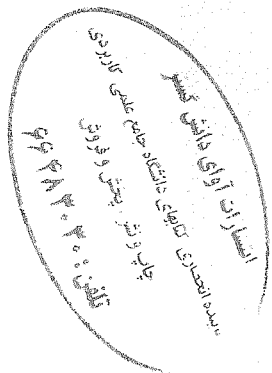 انتشارات آوای دانش گستر
نماینده انحصاری کتابهای دانشگاه جامع علمی کاربردی
چاپ و نشر - پخش و فروش
تلفن: ۶۶۴۸۳۰۳۰